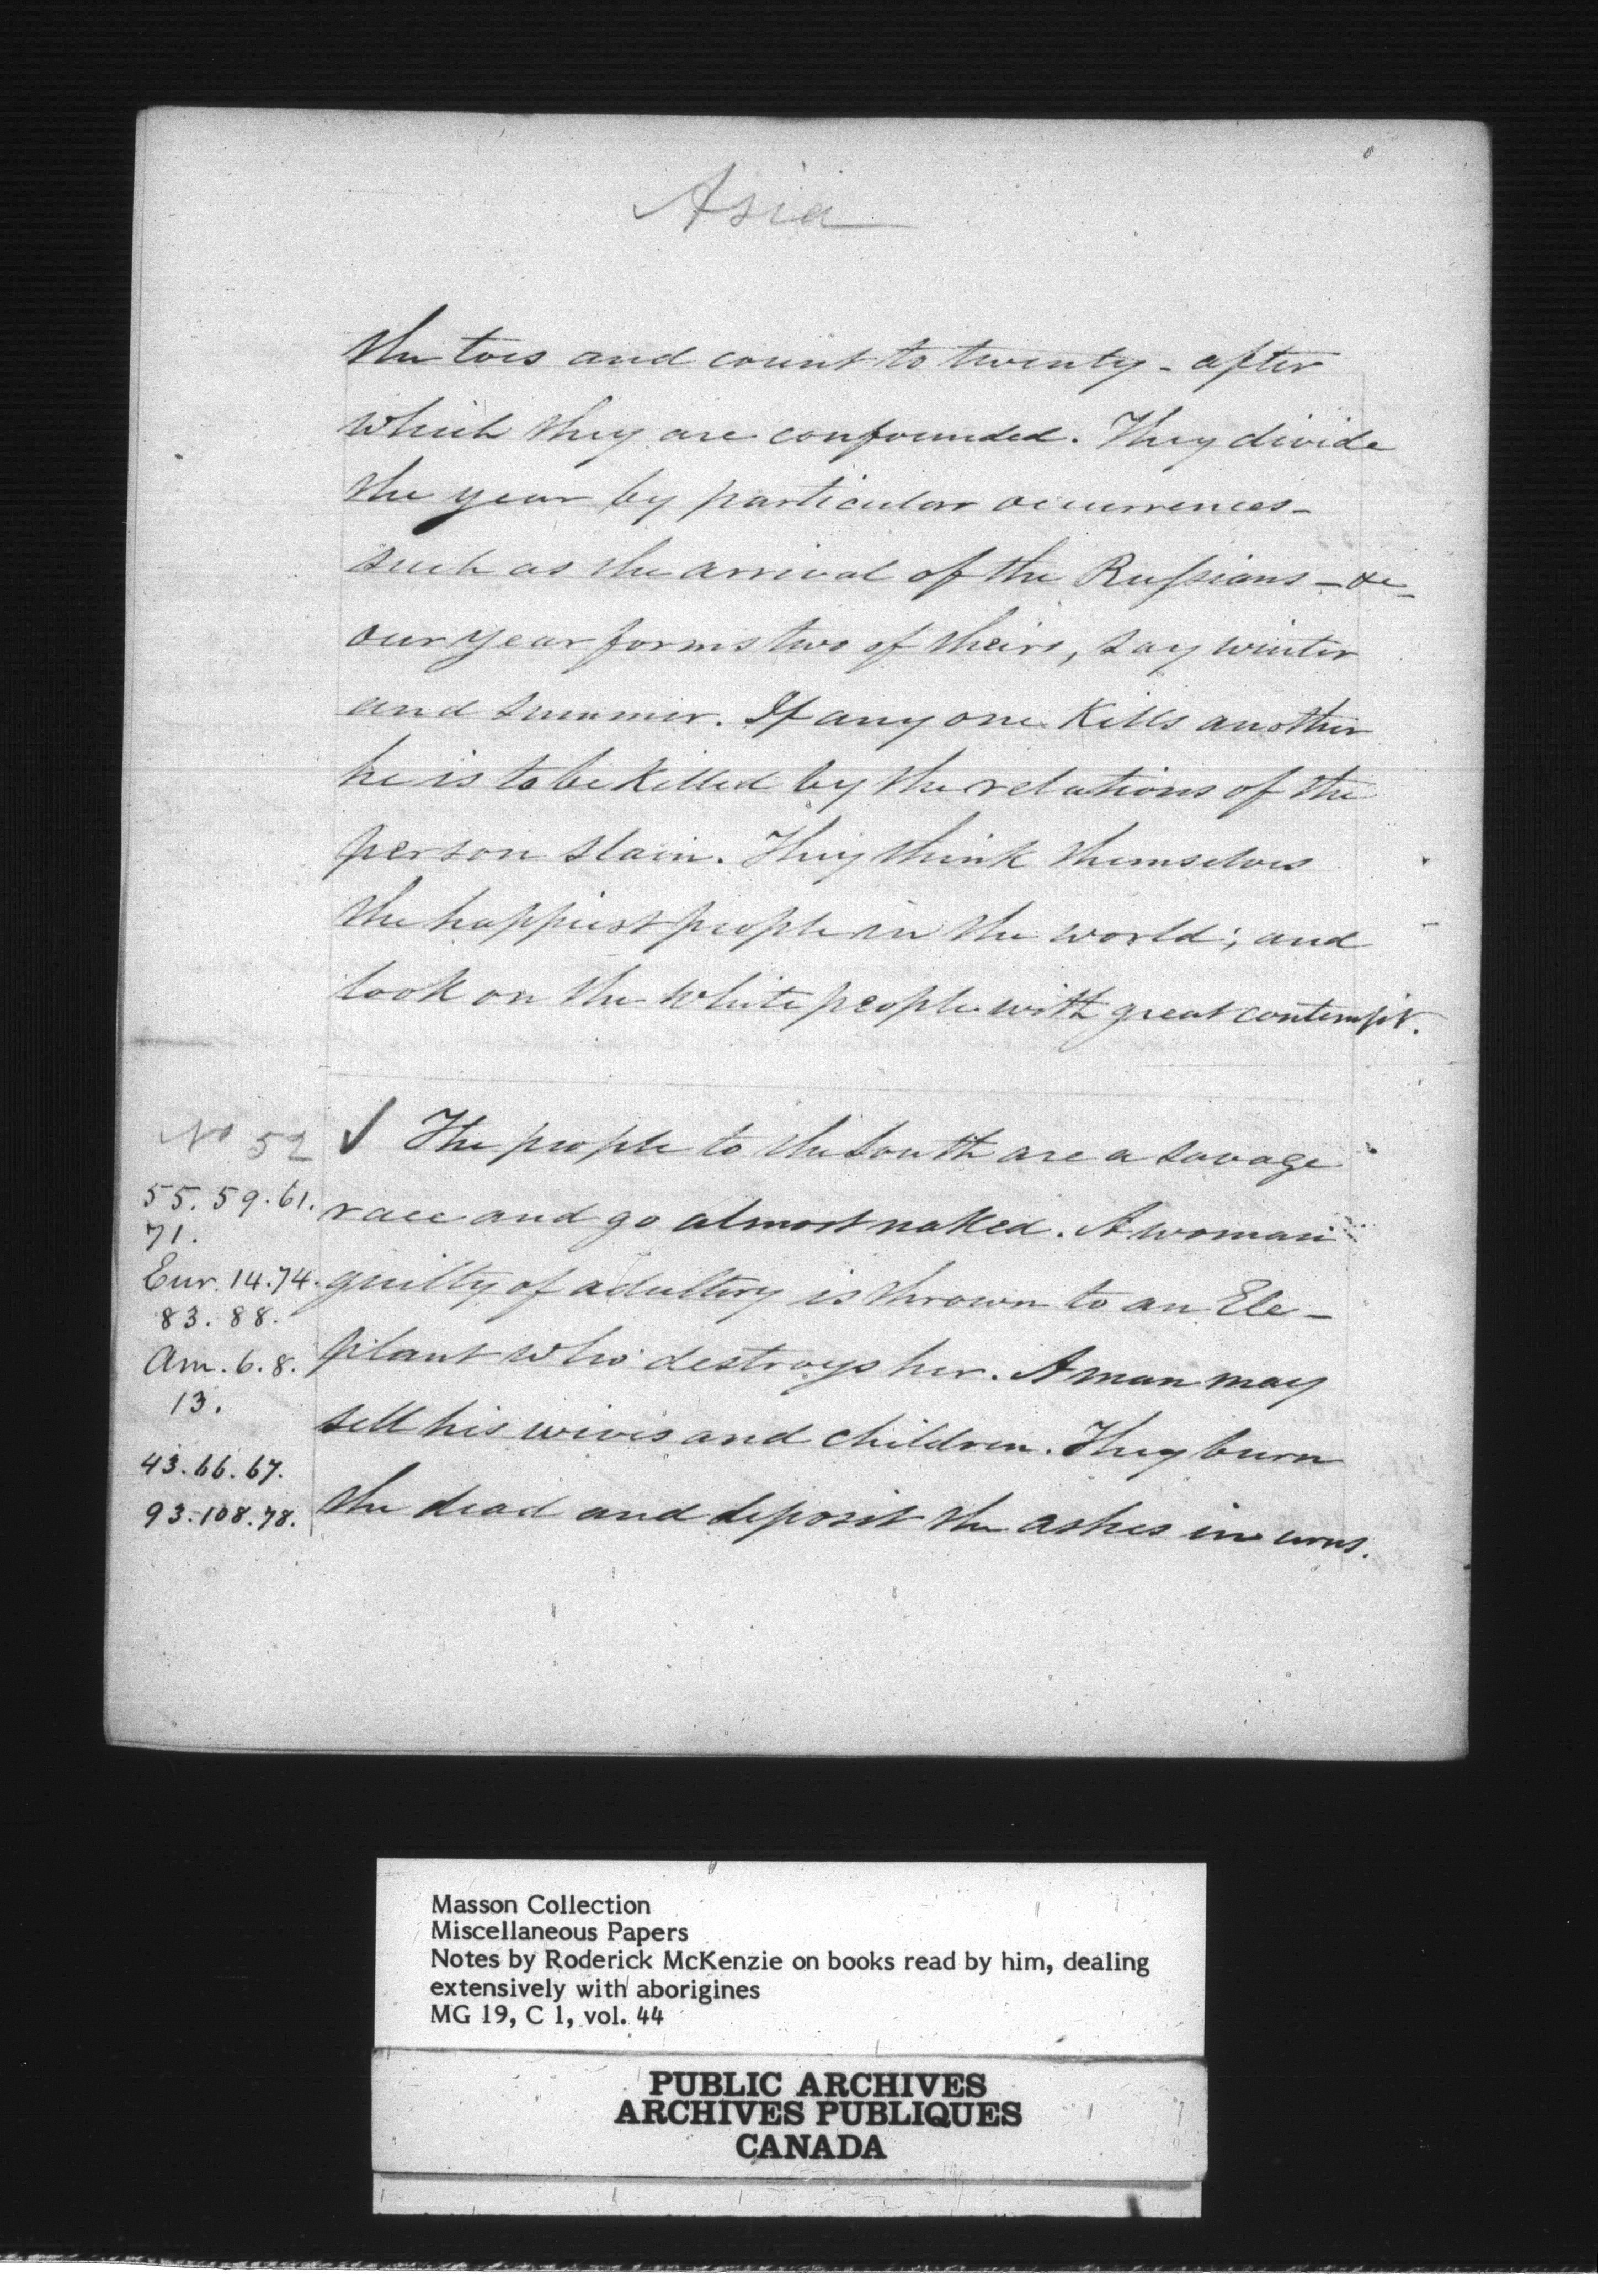 Asia
the toes and count to twenty - after
which they are confounded. They divide
the year by particular occurrences -
such as the arrival of the Russians - &c -
our year forms two of theirs, say winter
and summer. If any one kills another
he is to be killed by the relations of the
person slain. They think themselves
the happiest people in the world; and
look on the white people with great contempt.
No 52 ✓ The people to the South are a savage
55. 59. 61. race and go almost naked. A woman
71.
Eur. 14. 74. guilty of adultery is thrown to an Ele-
83. 88.
Am. 6. 8. phant who destroys her. A man may
13.
sell his wives and children. They burn
43. 66. 67.
93. 108. 78. the dead and deposit the ashes in urns.
Masson Collection
Miscellaneous Papers
Notes by Roderick McKenzie on books read by him, dealing
extensively with aborigines
MG 19, C 1, vol. 44
PUBLIC ARCHIVES
ARCHIVES PUBLIQUES
CANADA